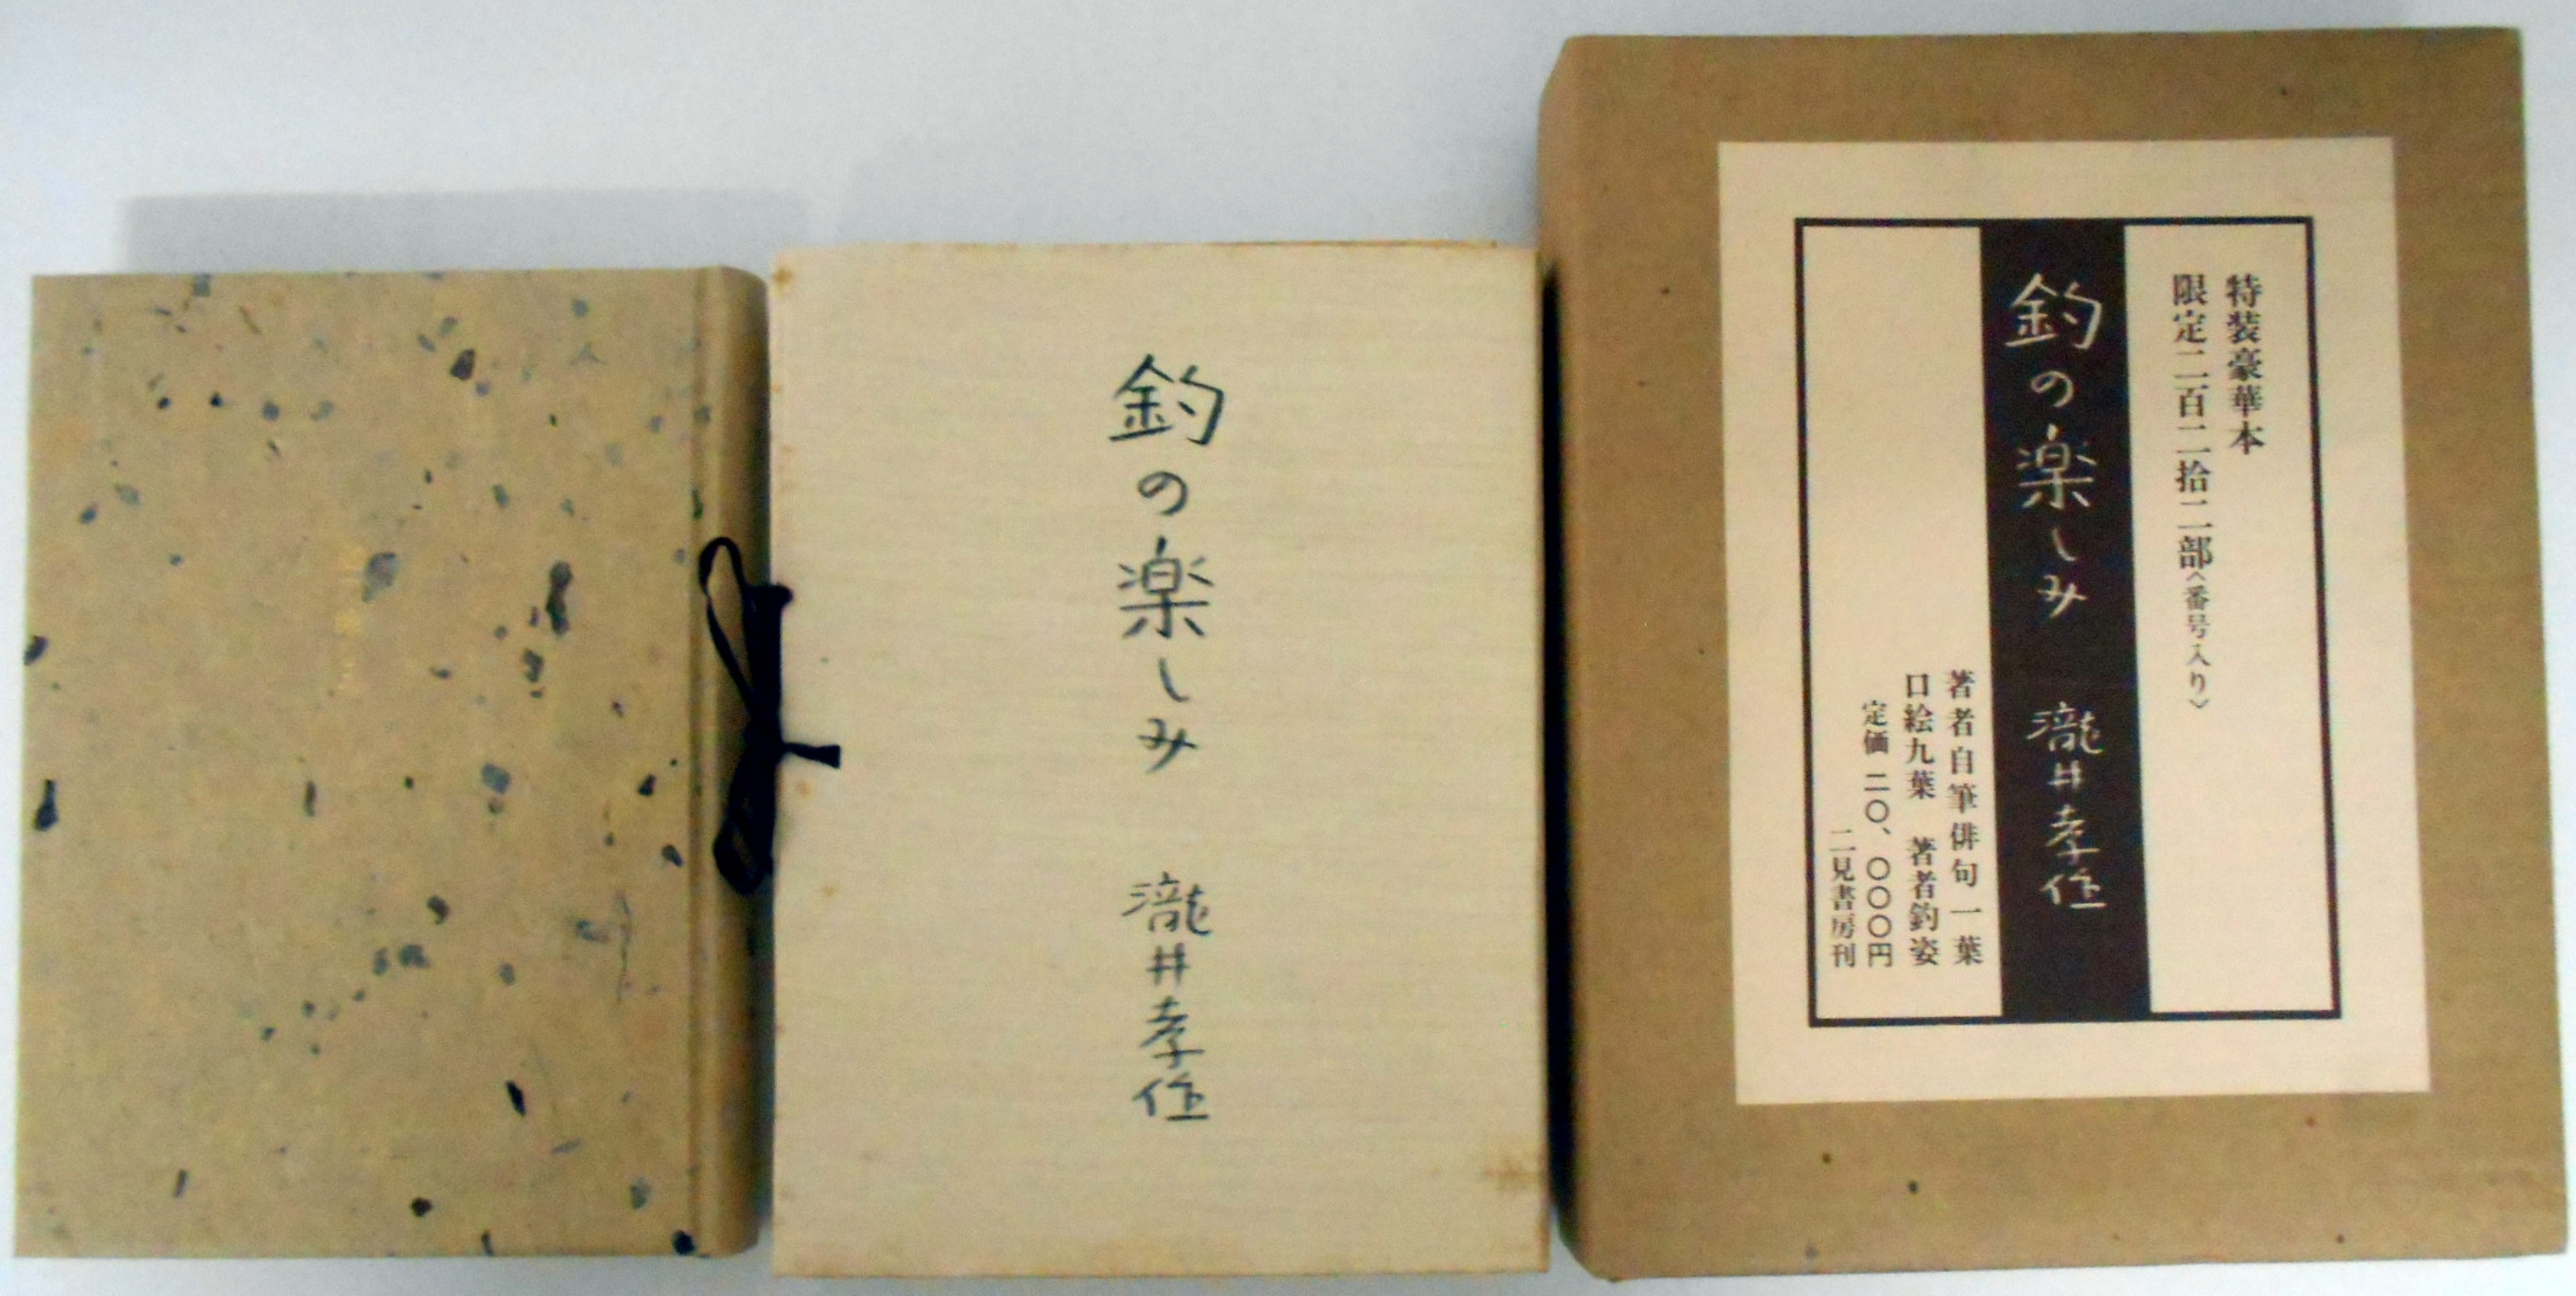 釣の楽しみ
瀧井孝作
特装豪華本
限定二百二拾二部〈番号入り〉
釣の楽しみ 瀧井孝作
著者自筆俳句一葉
口絵九葉 著者釣姿
定価 二〇、〇〇〇円
二見書房刊